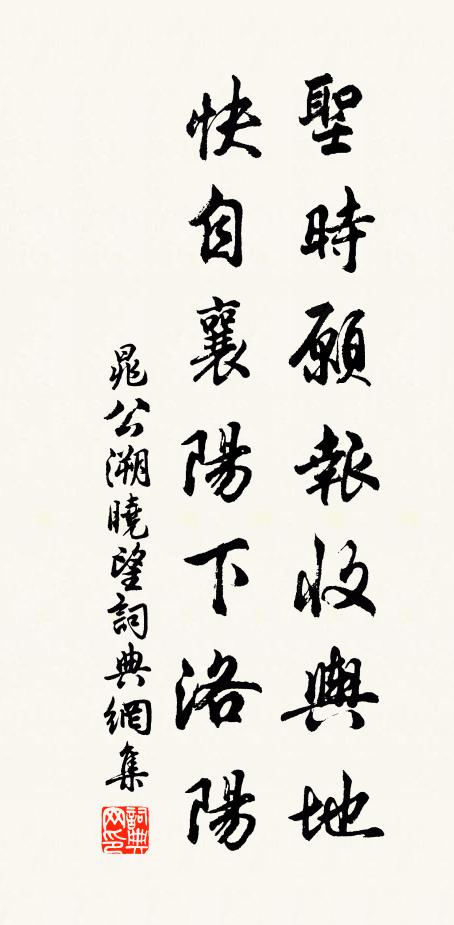 聖時願報收輿地
快自襄陽下洛陽
晁公溯曉望詞典網集
詞典網印